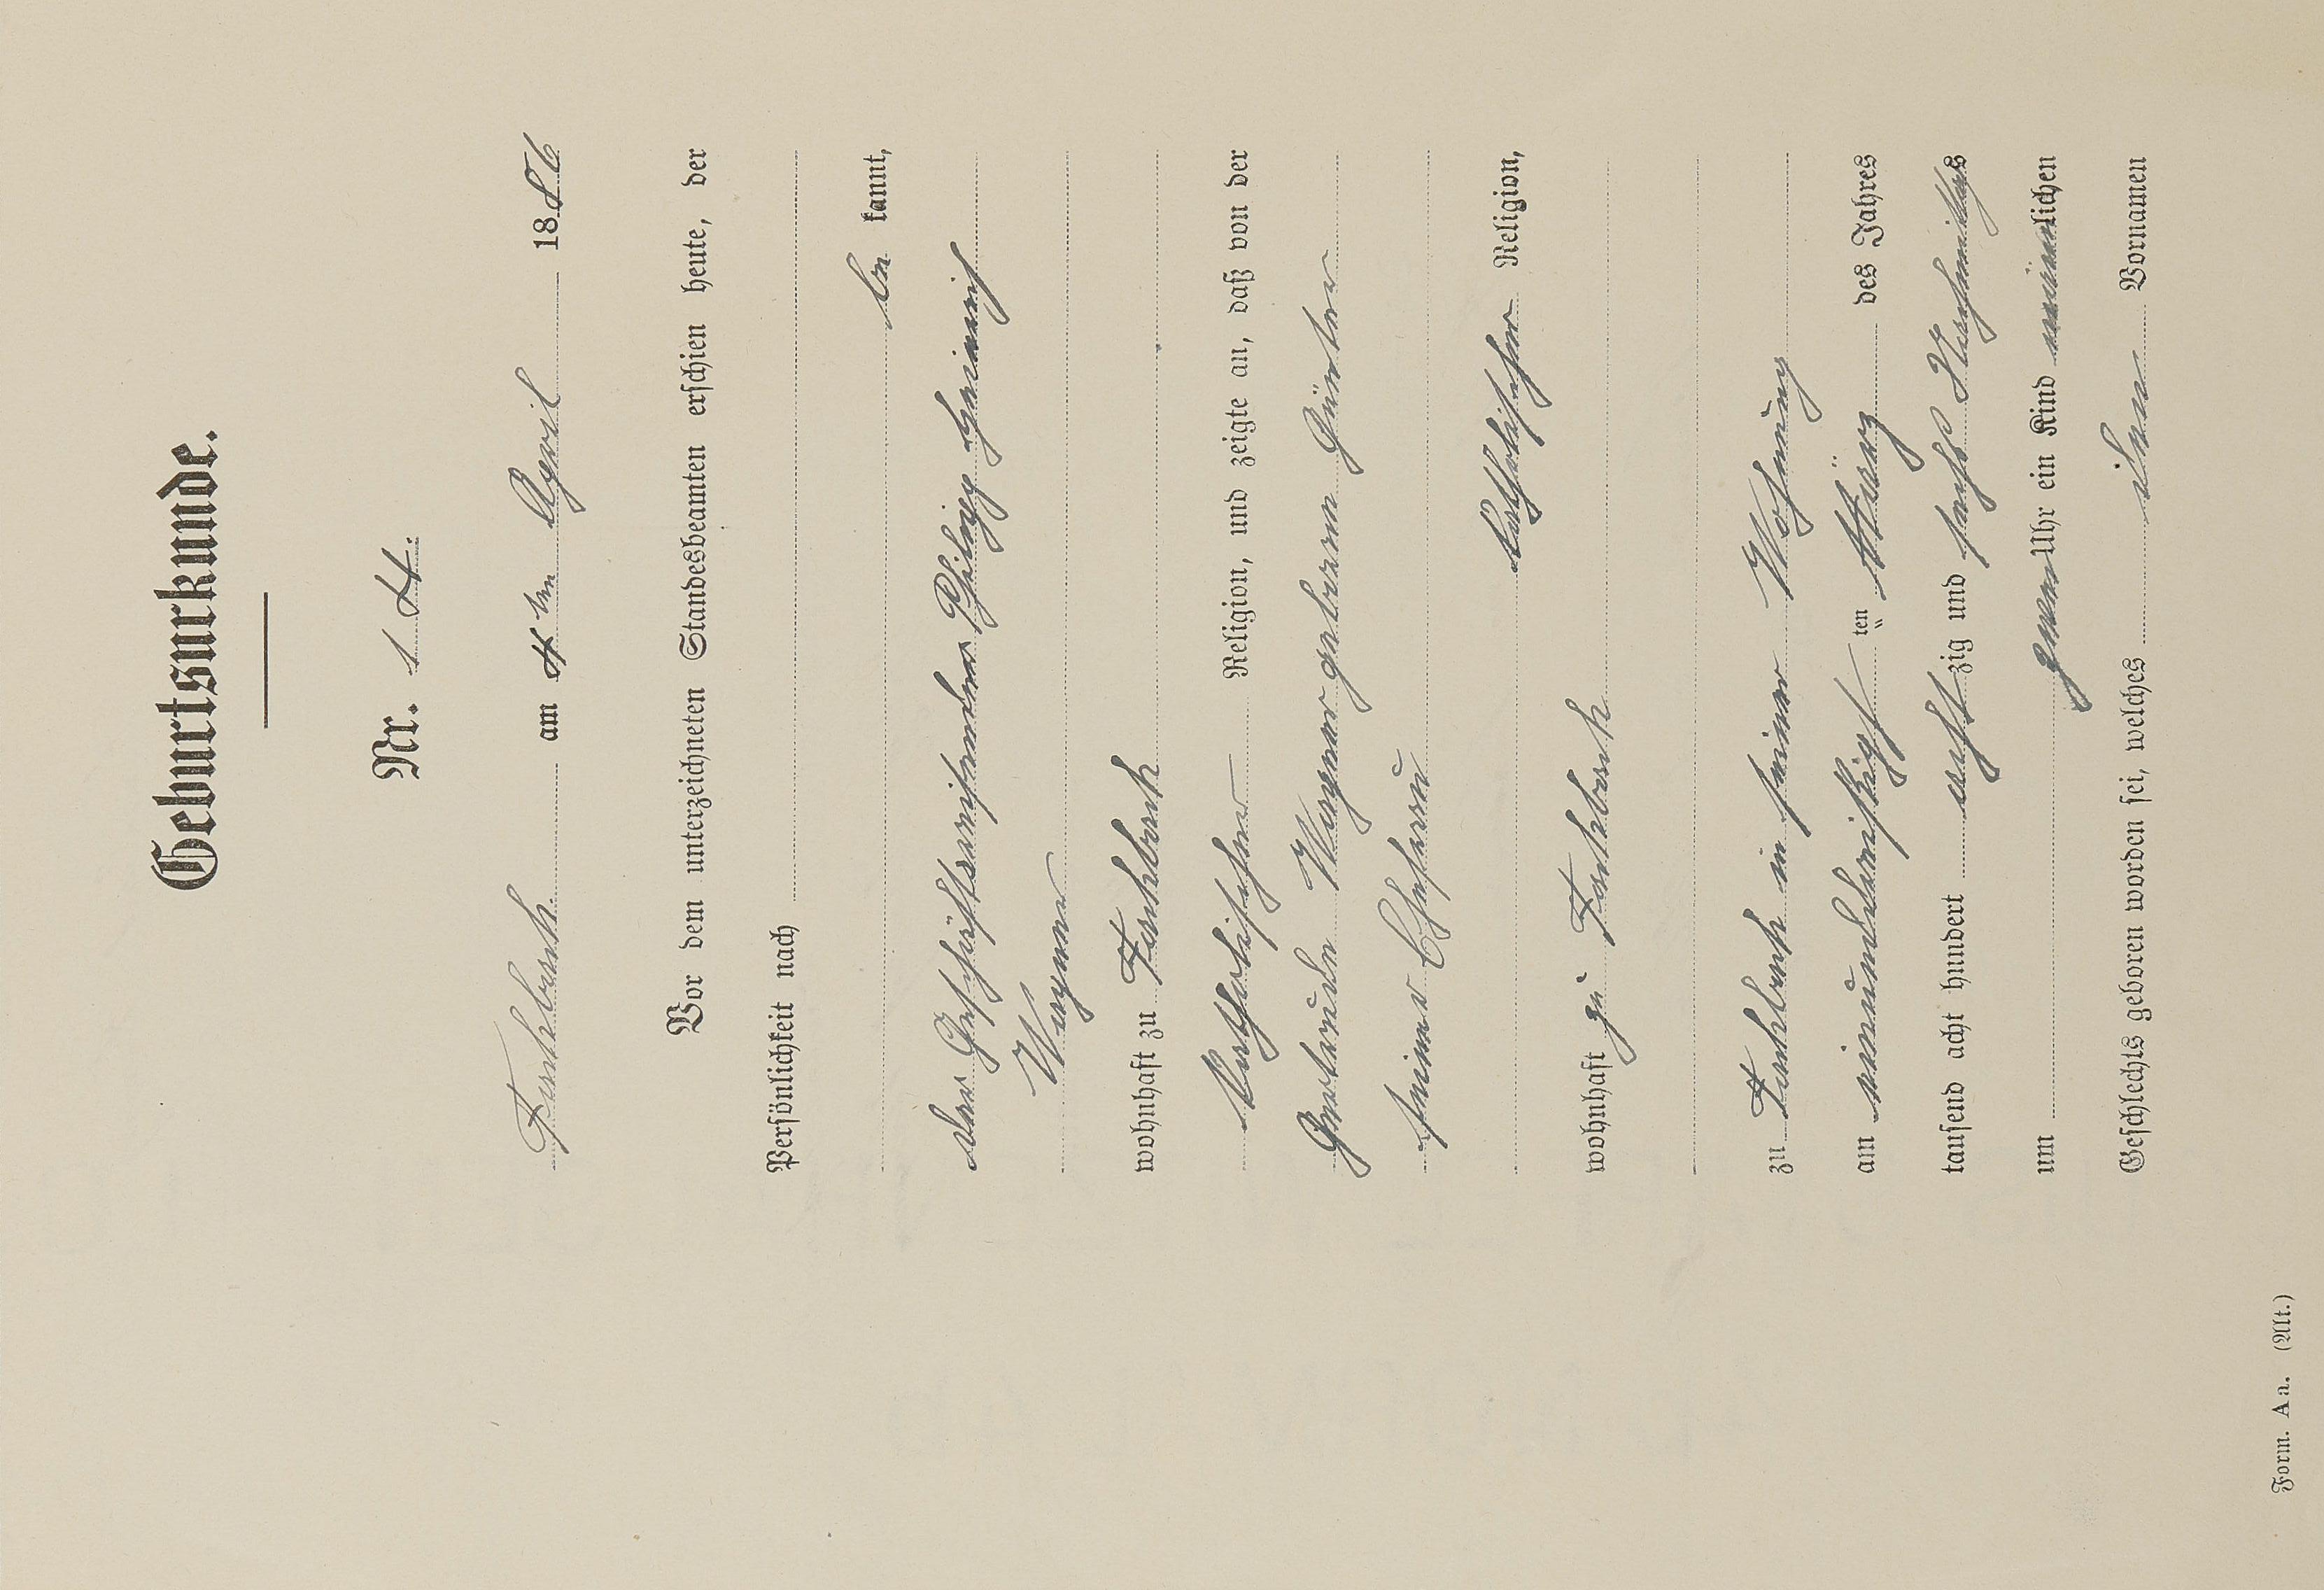 Geburtsurkunde.
Nr. 14.
am 4ten April 1886
Vor dem unterzeichneten Standesbeamten erschien heute, der
Persönlichkeit nach
be kannt,
der Geschäftsreisender Philipp Heinrich
Wagner
wohnhaft zu
katholischer Religion, und zeigte an, daß von der
Gertrude Wagner geborene Günter
seiner Ehefrau
katholischer Religion,
wohnhaft zu
zu in seiner Wohnung
am einunddreißigst ten März des Jahres
tausend acht hundert acht zig und sechs Nachmittags
um Uhr ein Kind männlichen
Geschlechts geboren worden sei, welches den Vornamen
Form. A a. (Alt.)